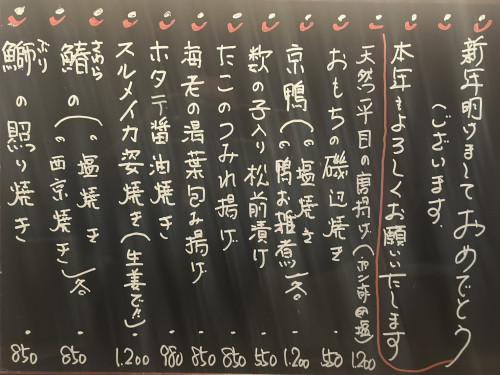 新年明けましておめでとう
ございます。
本年もよろしくお願いいたします
天然平目の唐揚げ(ポン酢or塩) 1.200
おもちの磯辺焼き 550
京鴨(の塩焼き の鴨お雑煮)各 1.200
数の子入り松前漬け 550
たこのつみれ揚げ 850
海老の湯葉包み揚げ 850
ホタテ醤油焼き 980
スルメイカ姿焼き(生姜で!!) 1.200
鰆さわらの(の塩焼き の西京焼き)各 850
鰤ぶりの照り焼き 850